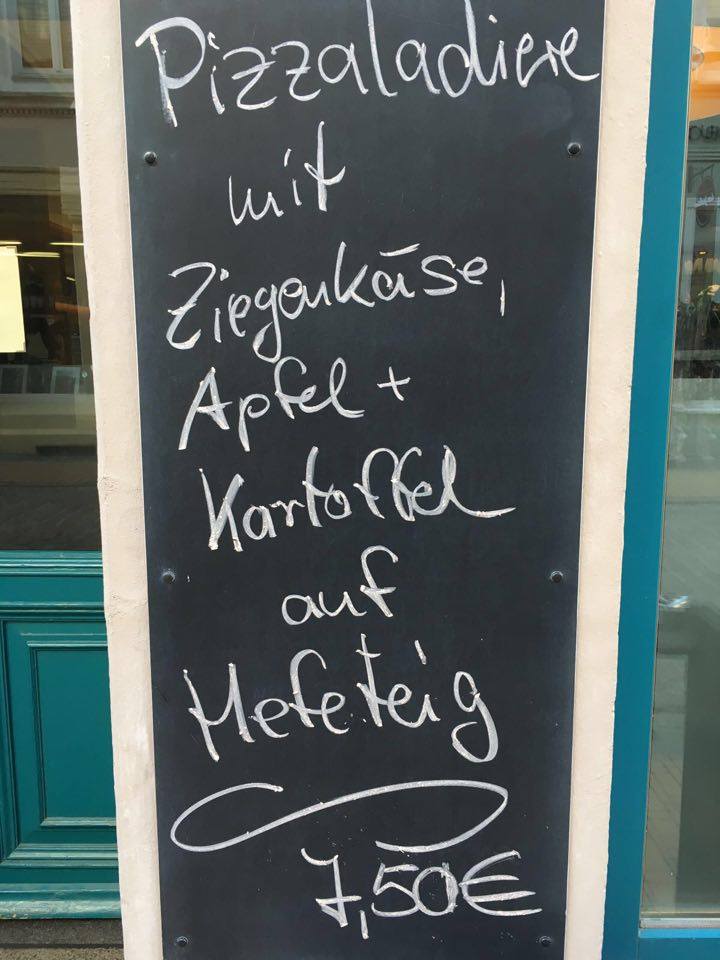 Pizzaladiere
mit
Ziegenkäse,
Apfel +
Kartoffel
auf
Hefeteig
7,50€